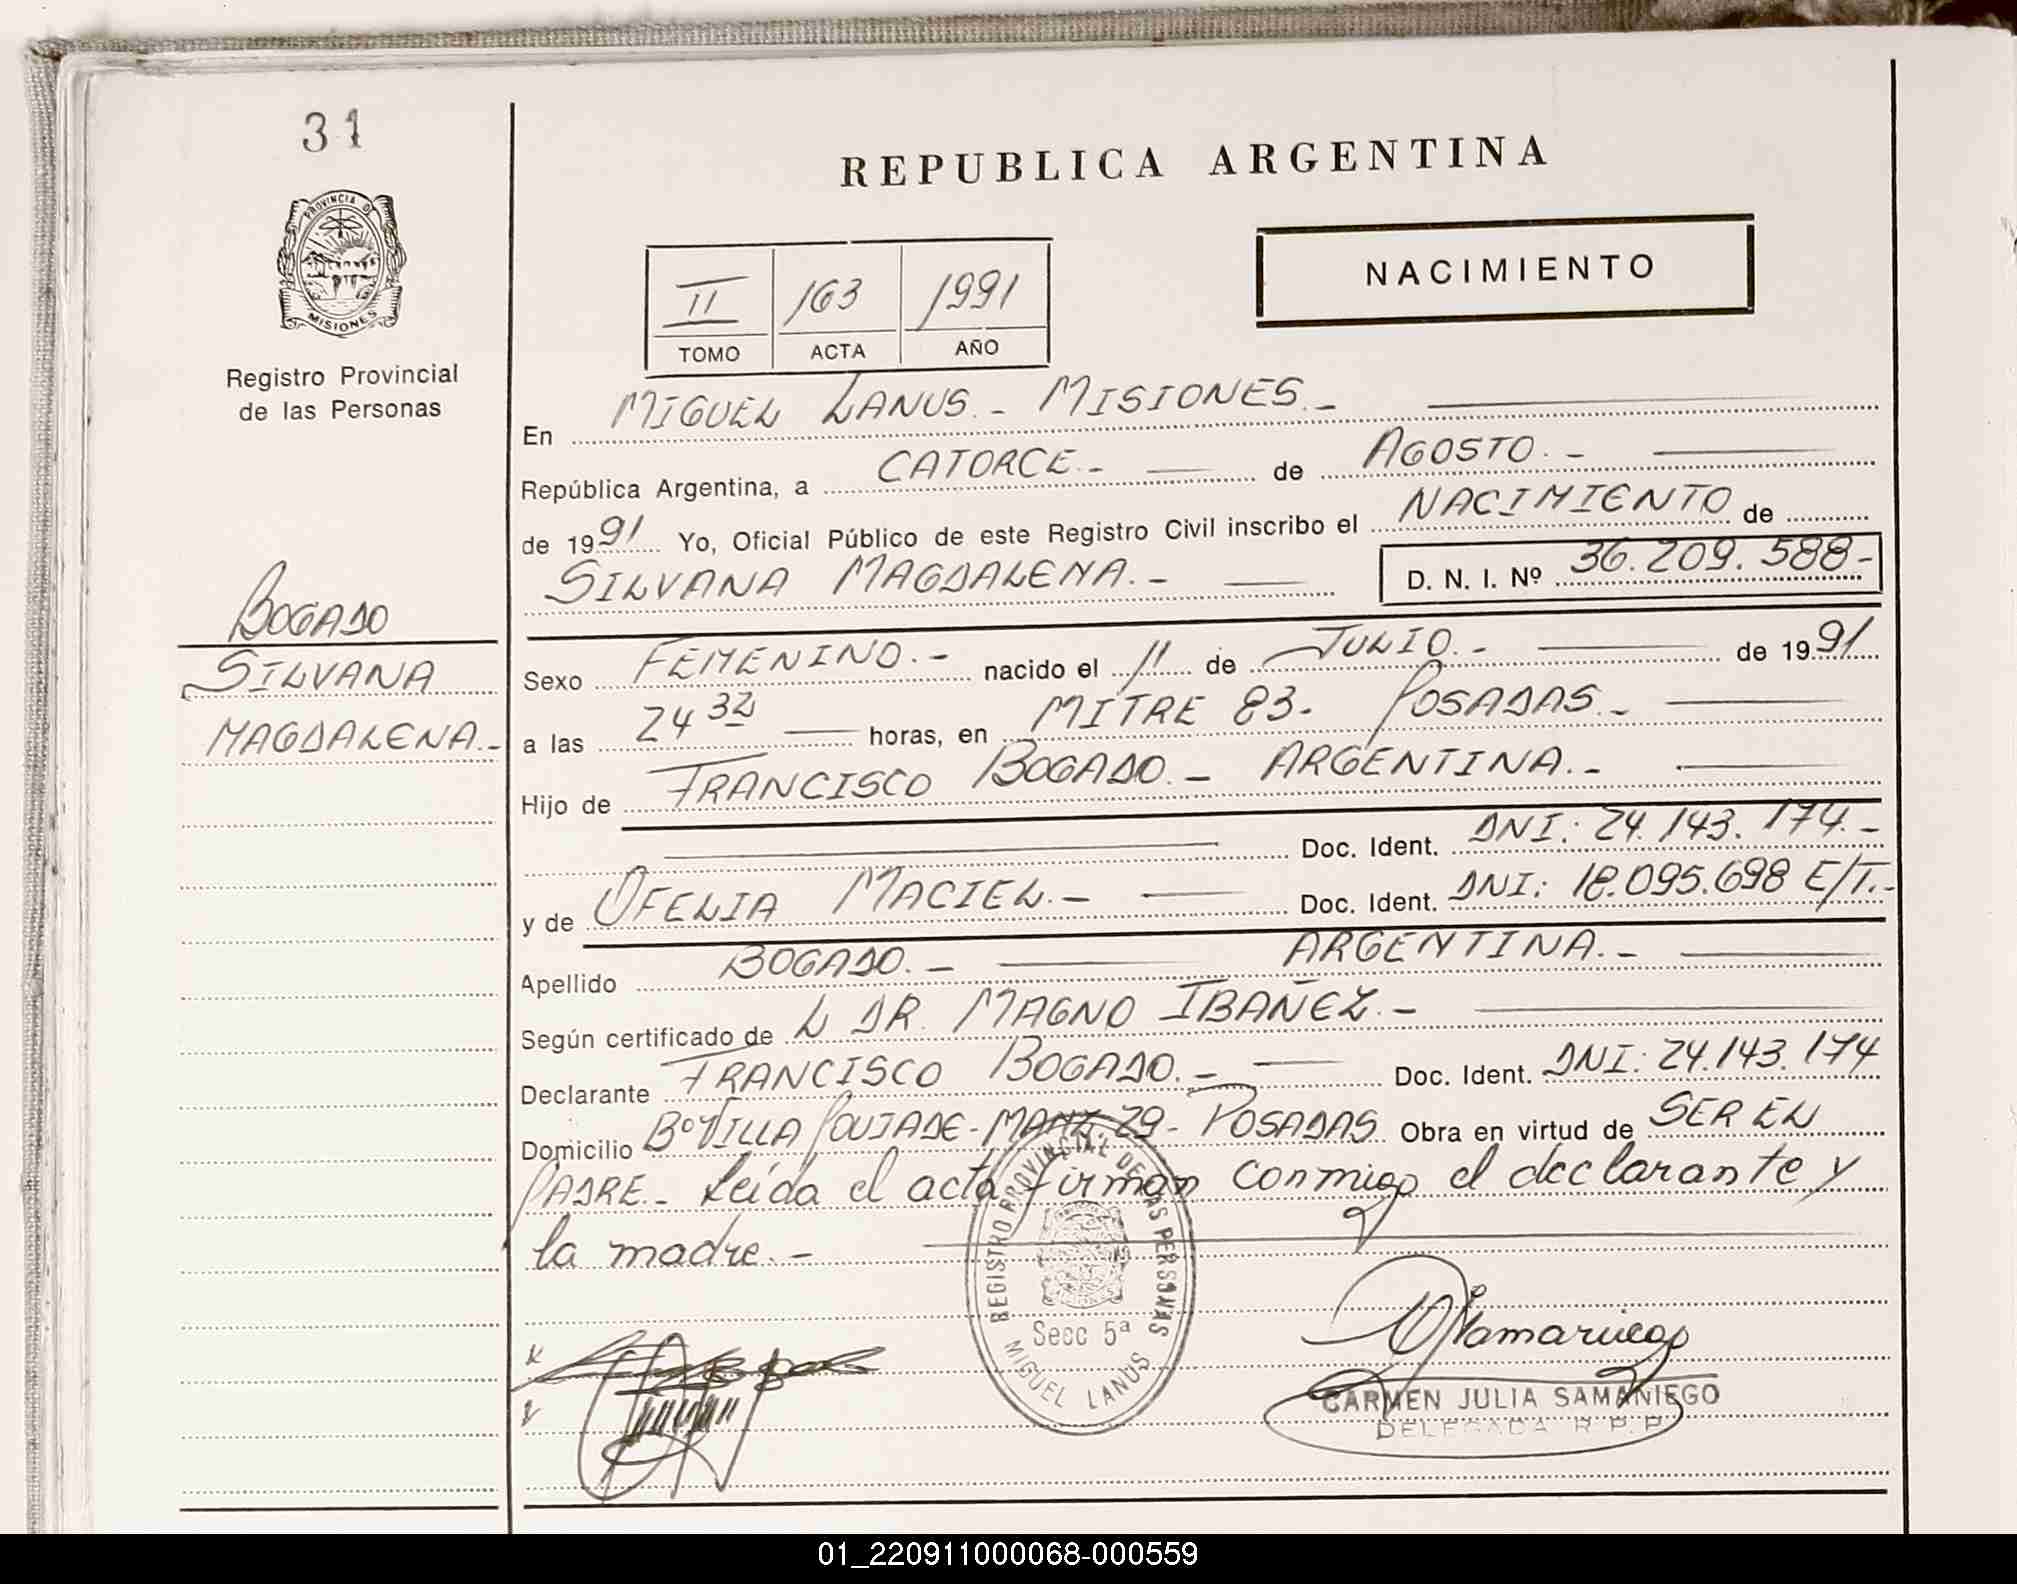 31
REPUBLICA ARGENTINA
PROVINCIA D
MISIONES
Registro Provincial
de las Personas
NACIMIENTO
II 163 1991
TOMO ACTA AÑO
En MIGUEL LANUS.- MISIONES.-
República Argentina, a CATORCE.- de AGOSTO.-
de 1991 Yo, Oficial Público de este Registro Civil inscribo el NACIMIENTO de
SILVANA MAGDALENA.- D. N. I. Nº 36.209.588-
BOGADO
SILVANA
MAGDALENA.-
Sexo FEMENINO.- nacido el 11 de JULIO.- de 1991
a las 24 32 horas, en MITRE 83- POSADAS.-
Hijo de FRANCISCO BOGADO.- ARGENTINA.-
Doc. Ident. DNI: 24.143.174.-
y de OFELIA MACIEL.- Doc. Ident. DNI: 18.095.698 E/T.-
Apellido BOGADO.- ARGENTINA.-
Según certificado de L DR. MAGNO IBAÑEZ.-
Declarante FRANCISCO BOGADO.- Doc. Ident. DNI: 24.143.174
Domicilio Bº VILLA POUJADE-MANZ 29- POSADAS Obra en virtud de SER EL
PADRE.- Leída el acta firman conmigo el declarante y
la madre.-
REGISTRO PROVINCIAL DE LAS PERSONAS
Secc 5ª
MIGUEL LANUS
CARMEN JULIA SAMANIEGO
DELEGADA R.P.P.
01_220911000068-000559